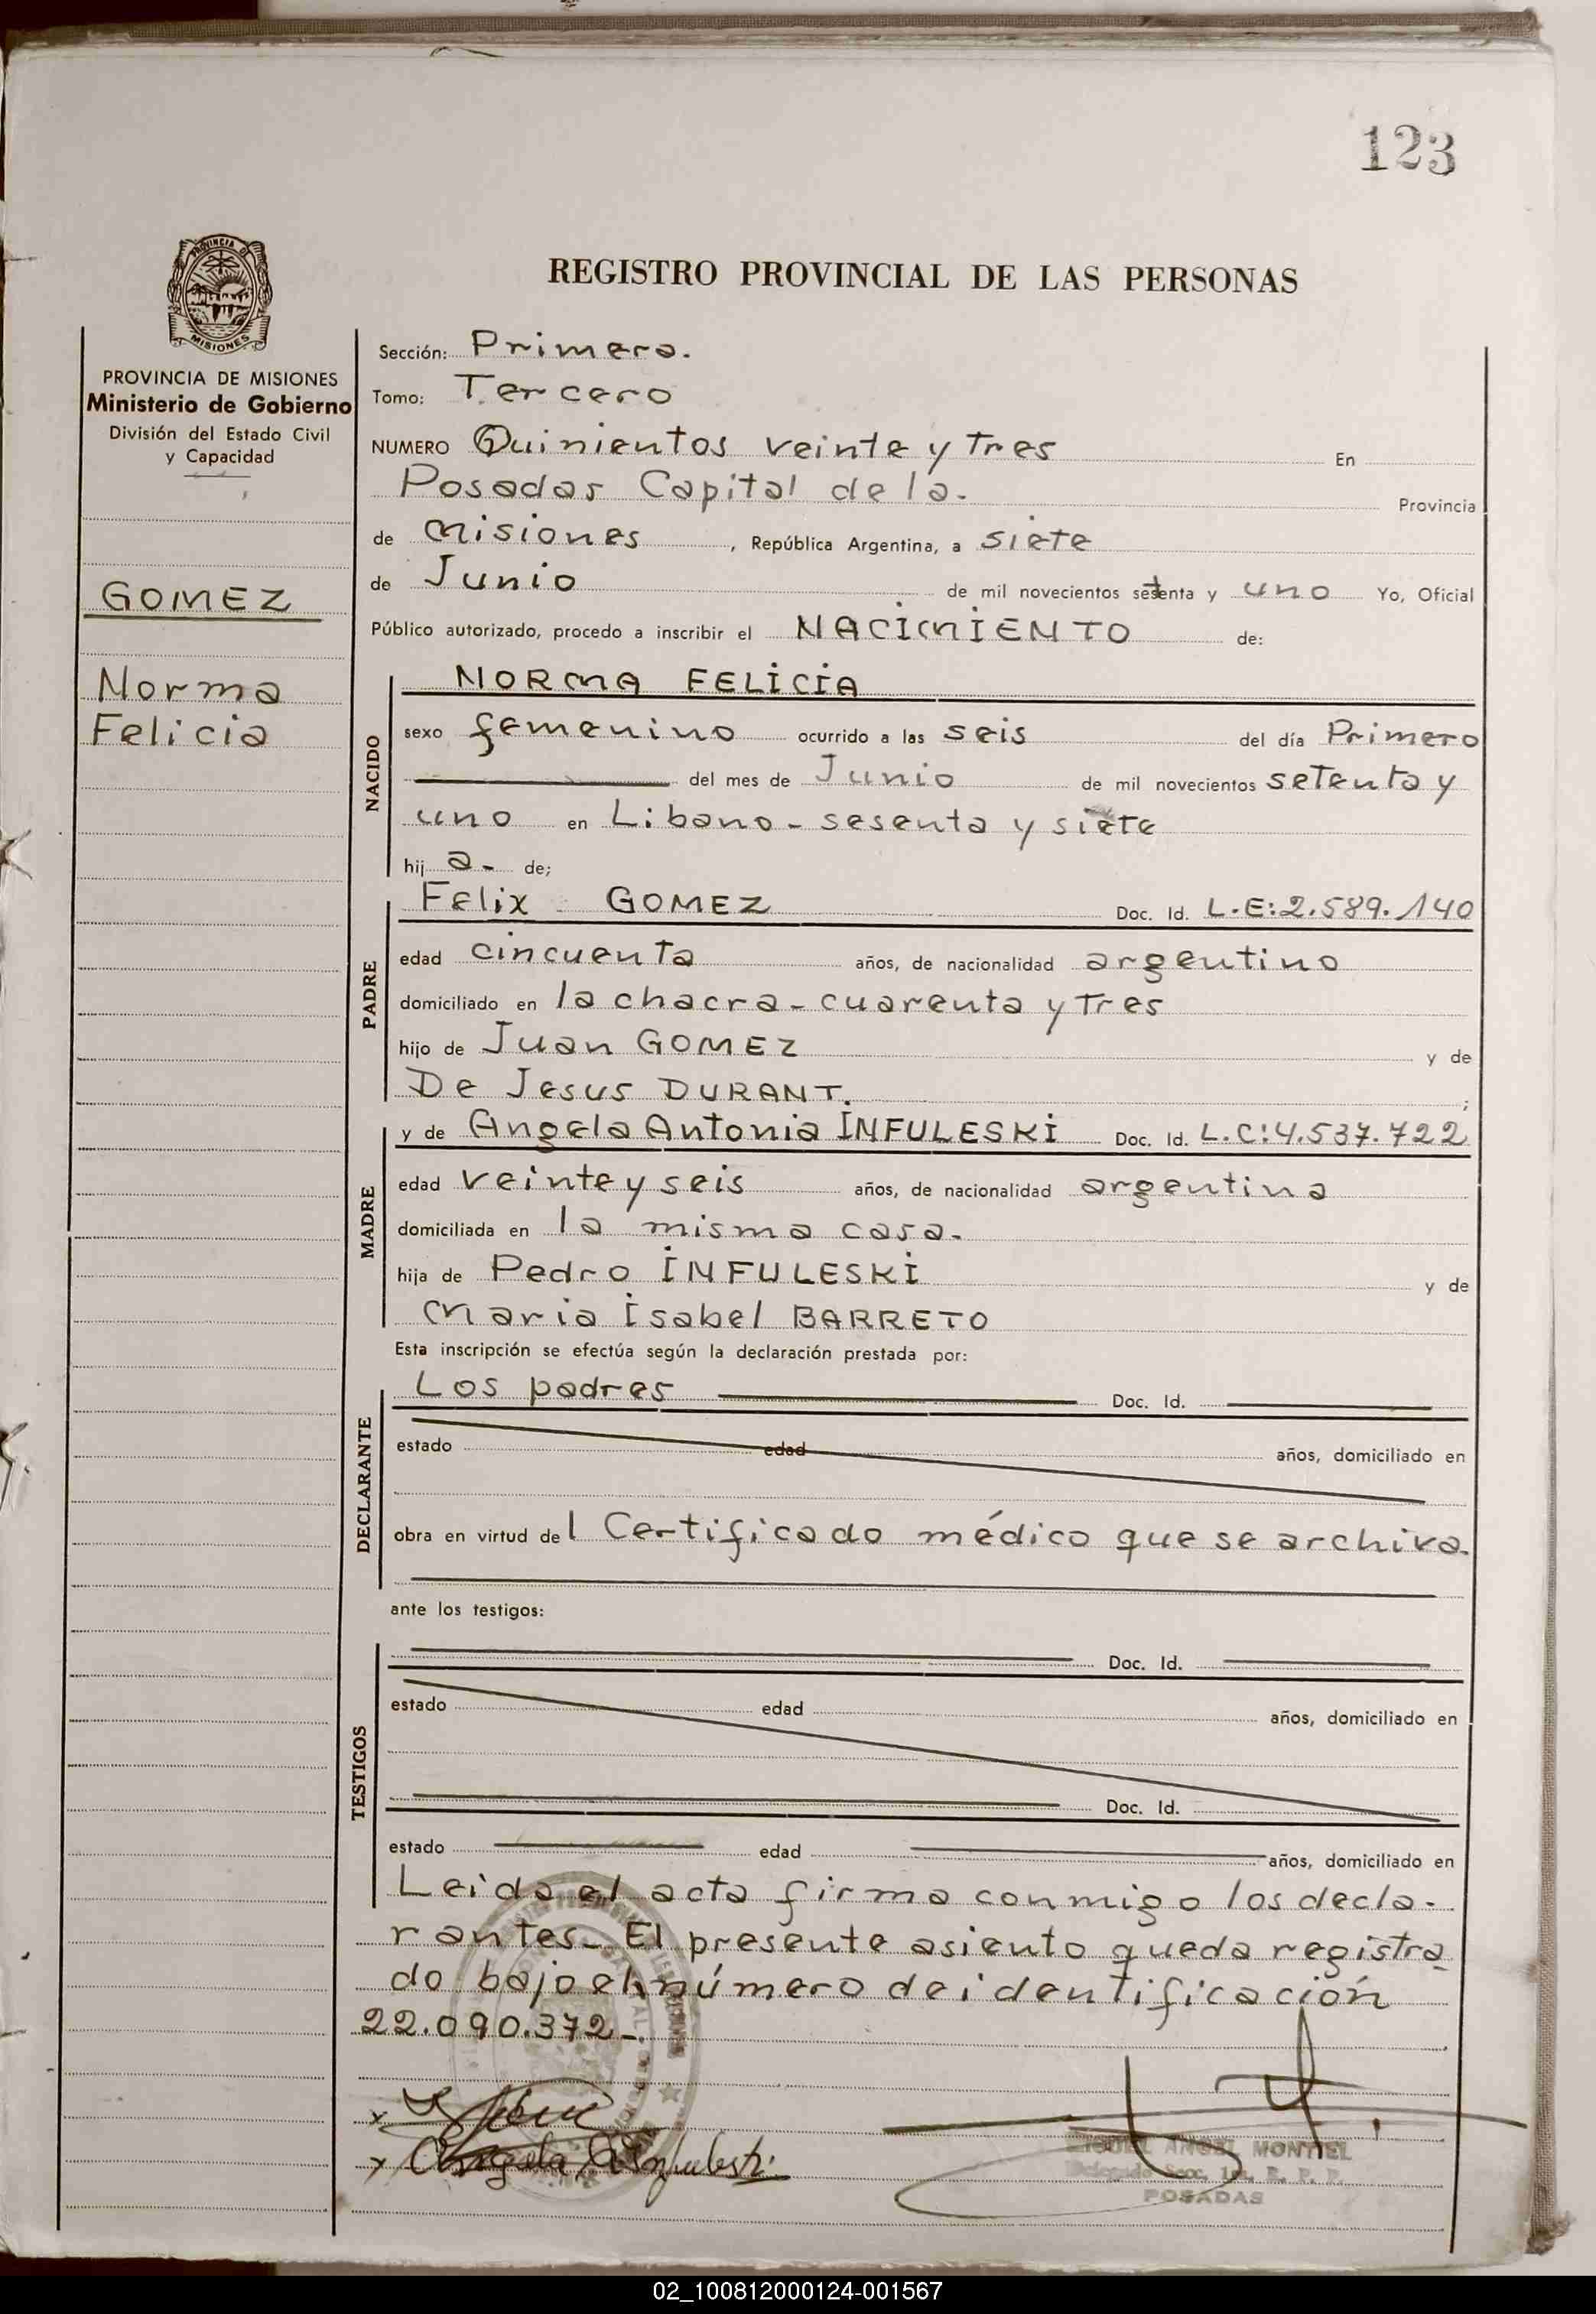 123
PROVINCIA DE
MISIONES
REGISTRO PROVINCIAL DE LAS PERSONAS
PROVINCIA DE MISIONES
Ministerio de Gobierno
División del Estado Civil
y Capacidad
GOMEZ
Norma
Felicia
Sección: Primera.
Tomo: Tercero
NUMERO Quinientos veinte y Tres En
Posadas Capital de la. Provincia
de Misiones, República Argentina, a siete
de Junio de mil novecientos setenta y uno Yo, Oficial
Público autorizado, procedo a inscribir el NACIMIENTO de:
NACIDO
NORMA FELICIA
sexo femenino ocurrido a las seis del día Primero
del mes de Junio de mil novecientos setenta y
uno en Libano - sesenta y siete
hij a - de;
PADRE
Felix GOMEZ Doc. Id. L.E:2.589.140
edad cincuenta años, de nacionalidad argentino
domiciliado en la chacra - cuarenta y Tres
hijo de Juan GOMEZ y de
De Jesus DURANT. ;
MADRE
y de Angela Antonia INFULESKI Doc. Id. L.C:4.537.722
edad veinte y seis años, de nacionalidad argentina
domiciliada en la misma casa.
hija de Pedro INFULESKI y de
Maria Isabel BARRETO
Esta inscripción se efectúa según la declaración prestada por:
DECLARANTE
Los padres Doc. Id.
estado edad años, domiciliado en
obra en virtud del Certificado médico que se archiva.
ante los testigos:
TESTIGOS
Doc. Id.
estado edad años, domiciliado en
Doc. Id.
estado edad años, domiciliado en
Leida el acta firma conmigo los decla-
rantes. El presente asiento queda registra
do bajo el número de identificación
22.090.372-
x
x Angela A Infuleski
MIGUEL ANGEL MONTIEL
Delegado Secc. 1a. R. P. P.
POSADAS
02_100812000124-001567